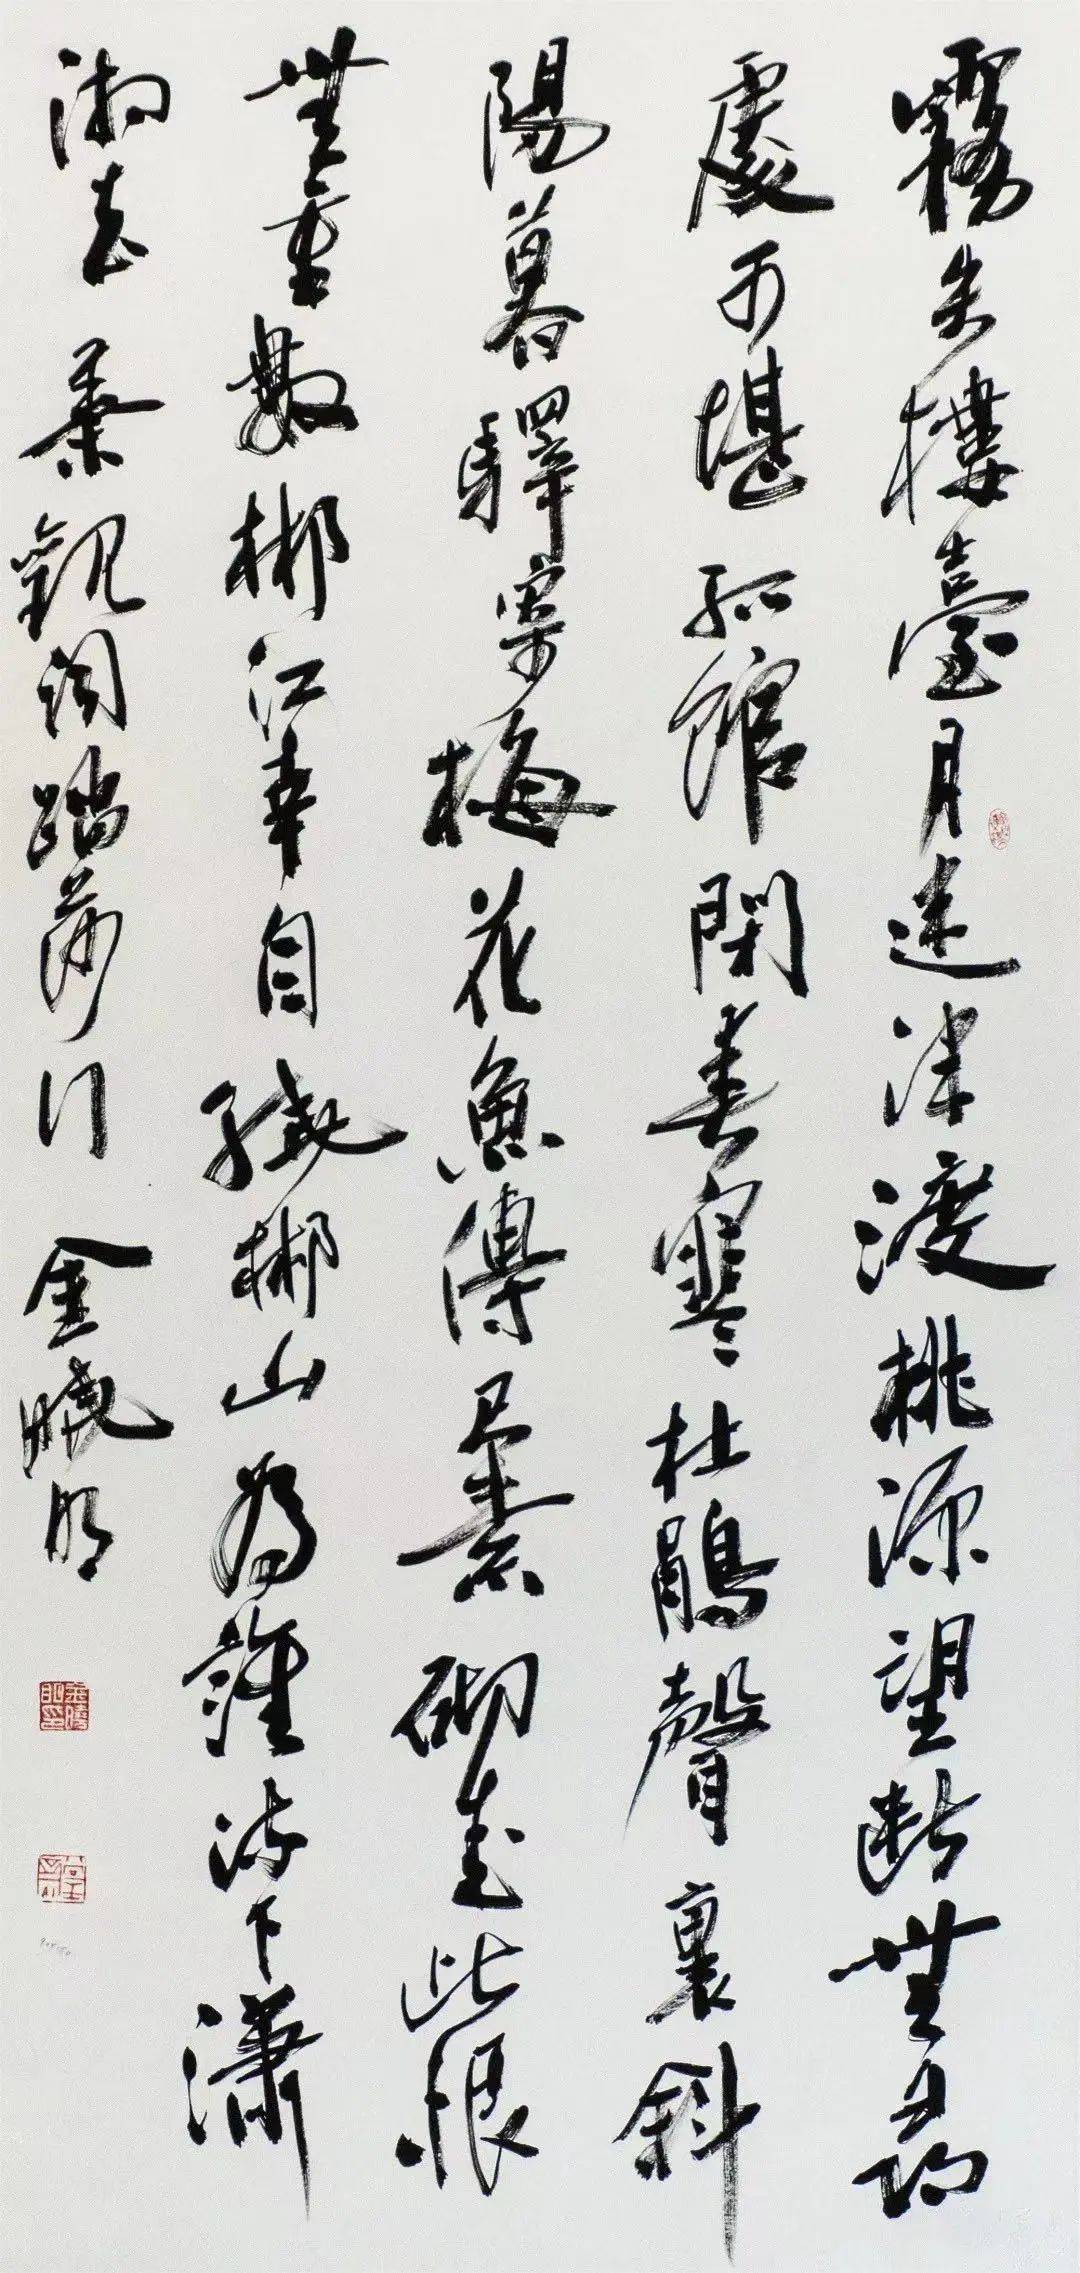 霧失樓臺月迷津渡桃源望斷無尋
處可堪孤館閉春寒杜鵑聲裏斜
陽暮驛寄梅花魚傳尺素砌成此恨
無重數郴江幸自繞郴山為誰流下瀟
湘去 秦觀詞踏莎行 金曉明